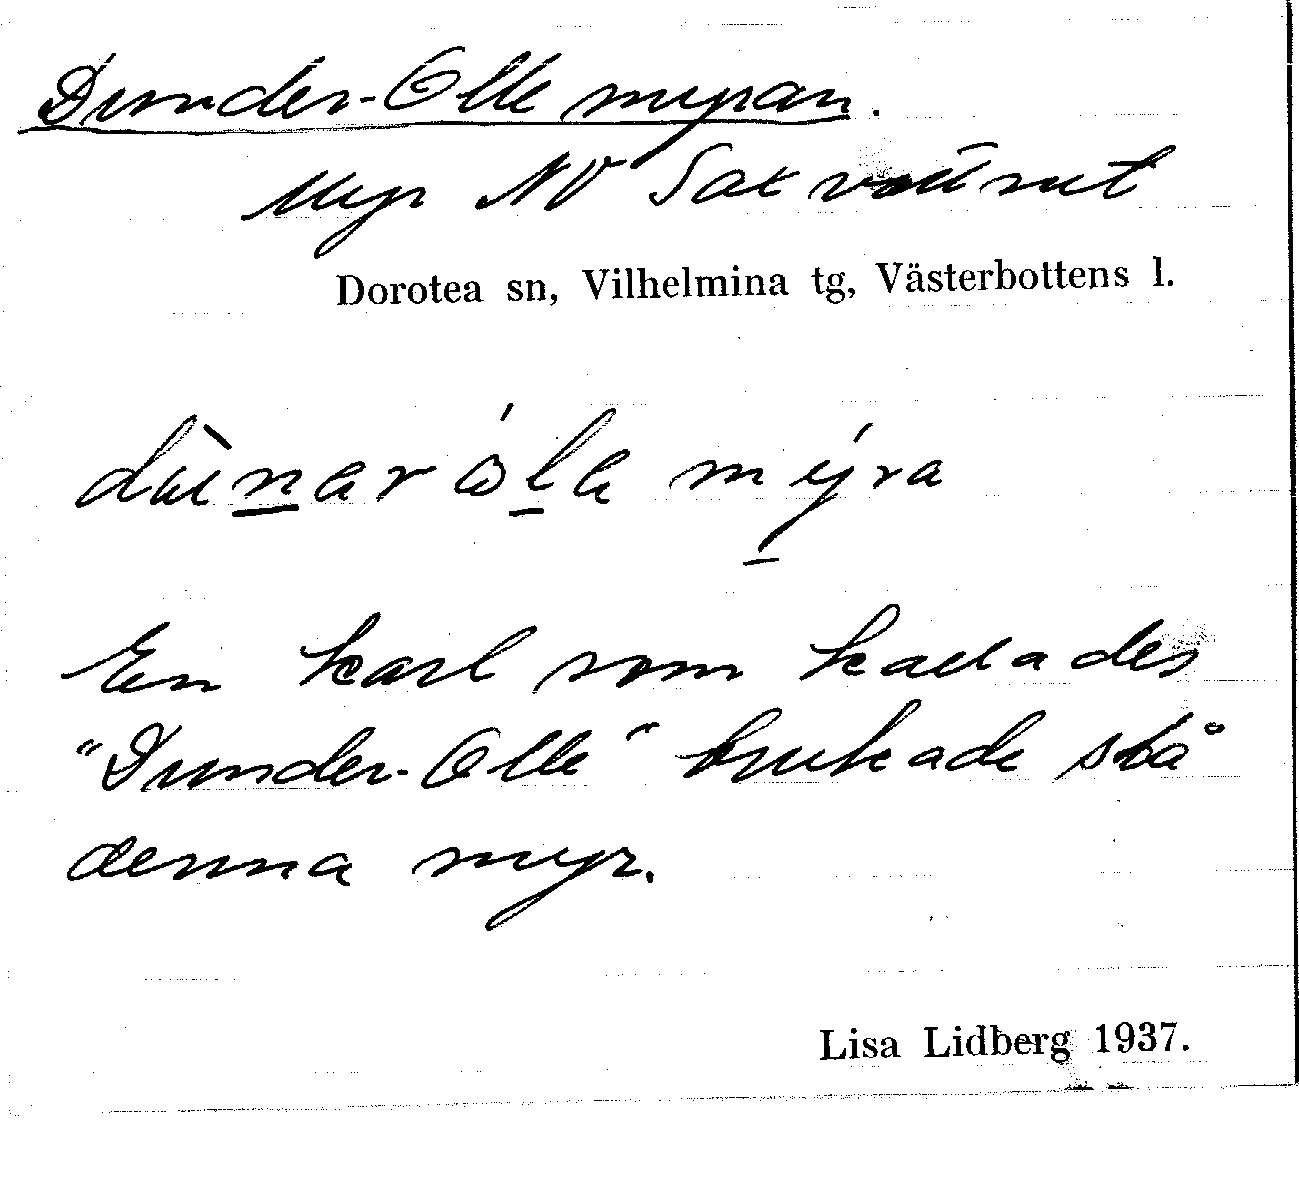 Dunder-Olle myran.
Myr NV Satvattnet
Dorotea sn, Vilhelmina tg, Västerbottens l.
En karl som kallades
"Dunder-Olle" brukade slå
denna myr.
Lisa Lidberg 1937.